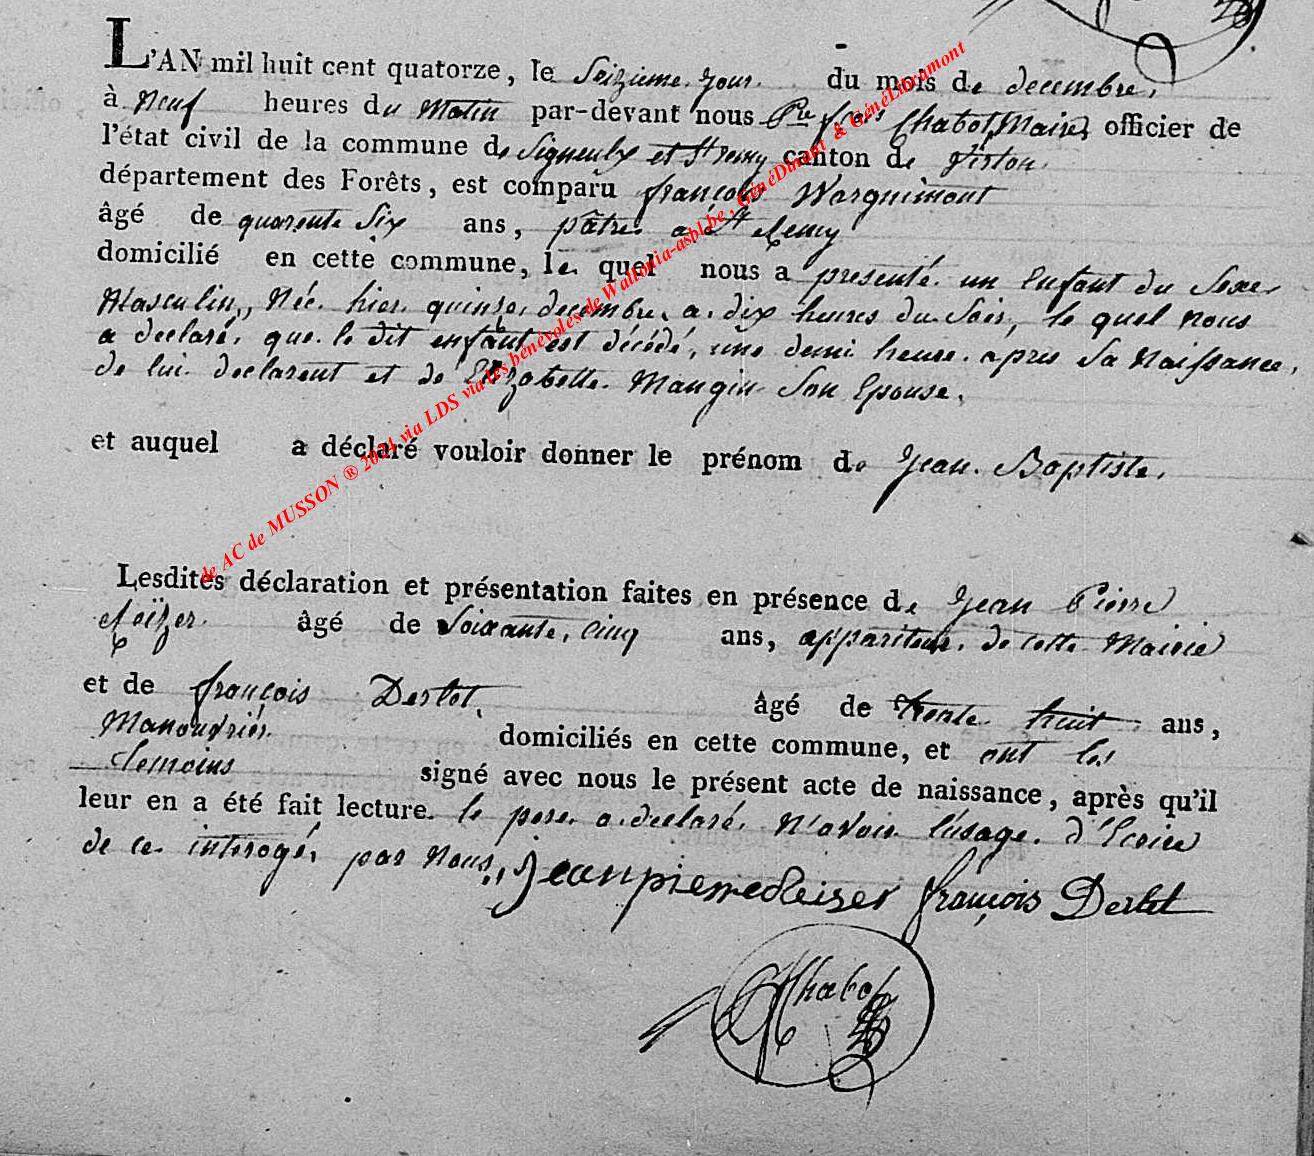 L'AN mil huit cent quatorze, le Seizieme jour du mois de decembre,
à Neuf heures du Matin par-devant nous Pre fois Chabot, Maire, officier de
l'état civil de la commune de Signeulx et St remy canton de Virton
département des Forêts, est comparu françois Warquimont
âgé de quarente Six ans, pâtre a St Remy
domicilié en cette commune, le quel nous a presenté un Enfant du Sexe
Masculin, Née hier quinze decembre a dix heures du Soir, le quel nous
a declaré que le dit enfant est décédé, une demi heure apres Sa Naissance,
de lui declarent et de Elizabette Mangin Son Epouse,
et auquel a déclaré vouloir donner le prénom de Jean Baptiste,
Lesdites déclaration et présentation faites en présence de Jean Pierre
âgé de Soixante, cinq ans, appariteur de cette Mairie
et de françois Derlet, âgé de trente huit ans,
Manouvrier domiciliés en cette commune, et ont les
temoins signé avec nous le présent acte de naissance, après qu'il
leur en a été fait lecture. le pere a declaré N'avoir l'usage d'Ecrire
de ce interogé par Nous, jean pierre françois Derlet
Chabot
de AC de MUSSON ® 2021 via LDS via les bénévoles de Wallonia-asbl.be, GénéDinant & GénéLibramont